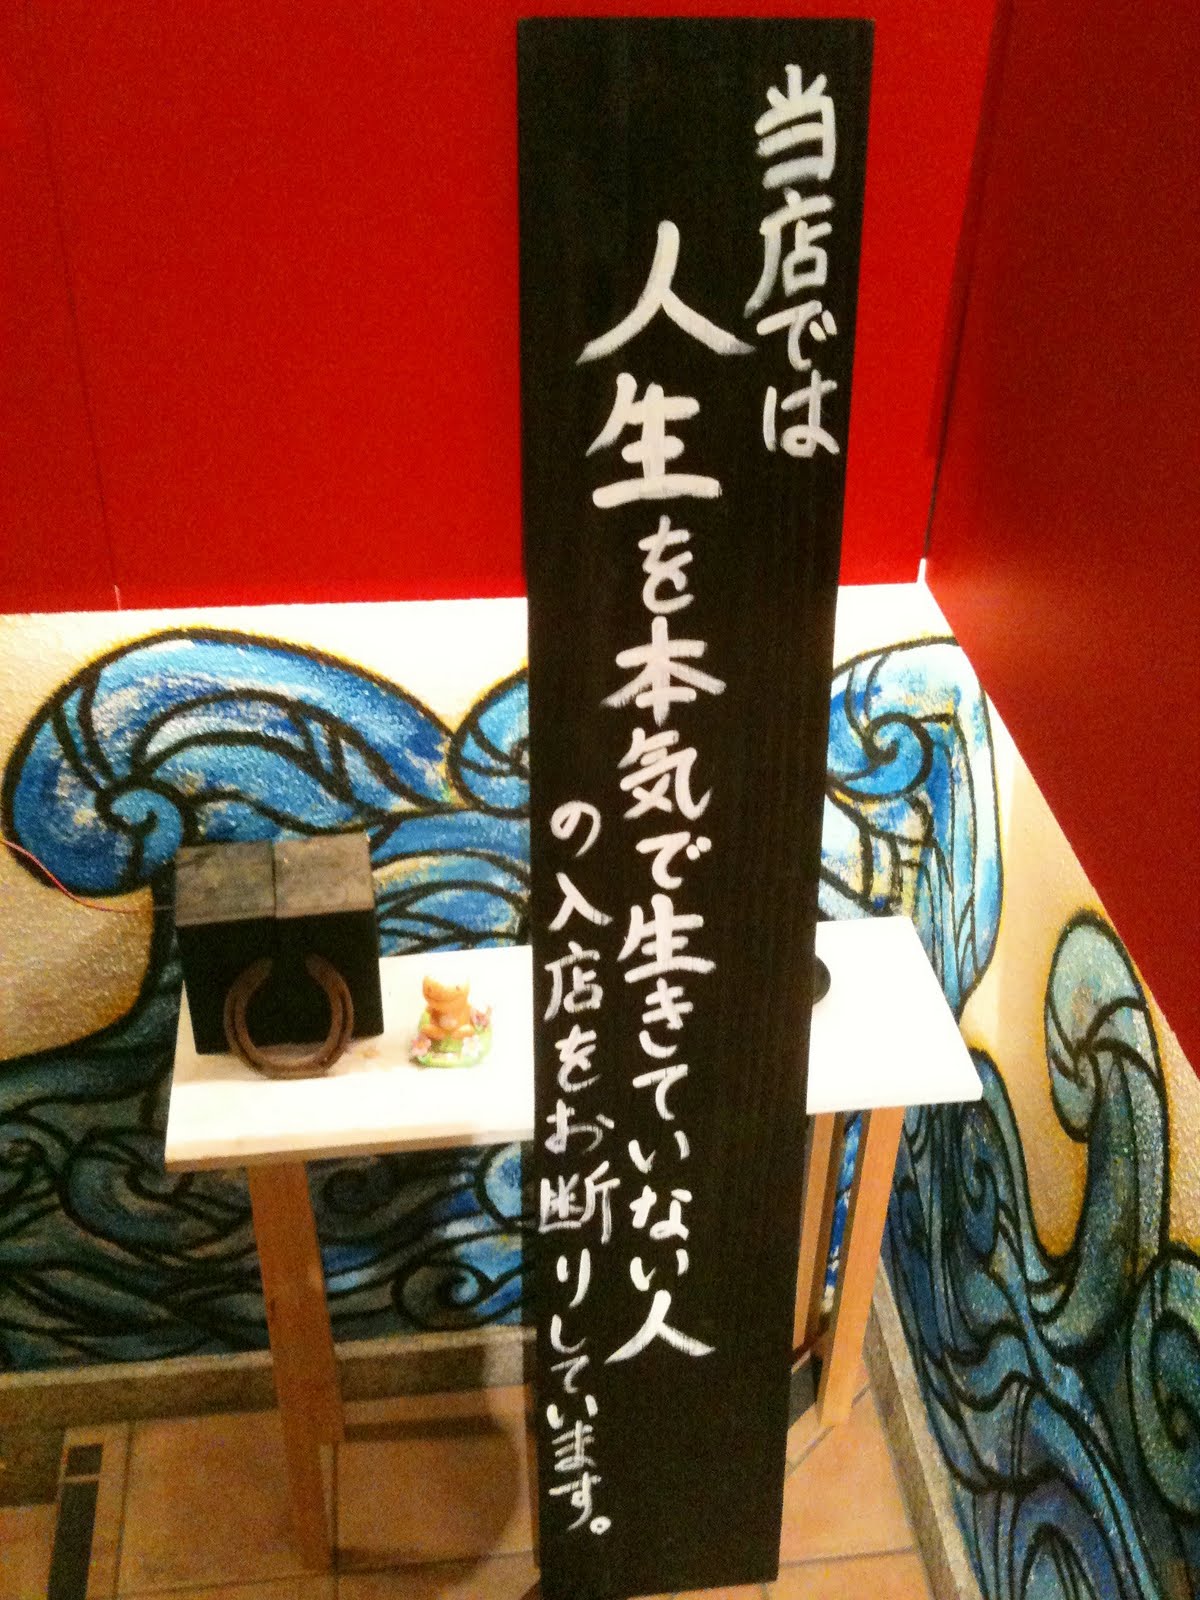 当店では
人生を本気で生きていない人
の入店をお断りしています。